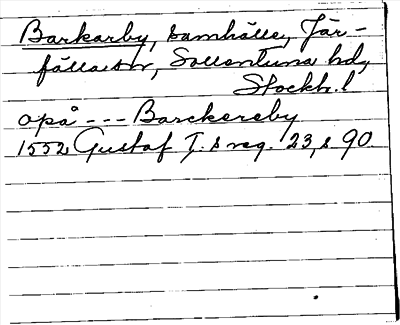 Barkarby, samhälle, Jär-
fälla sn, Sollentuna hd,
Stockh. l
opå --- Barckereby
1552 Gustaf I:s reg. 23, s 90